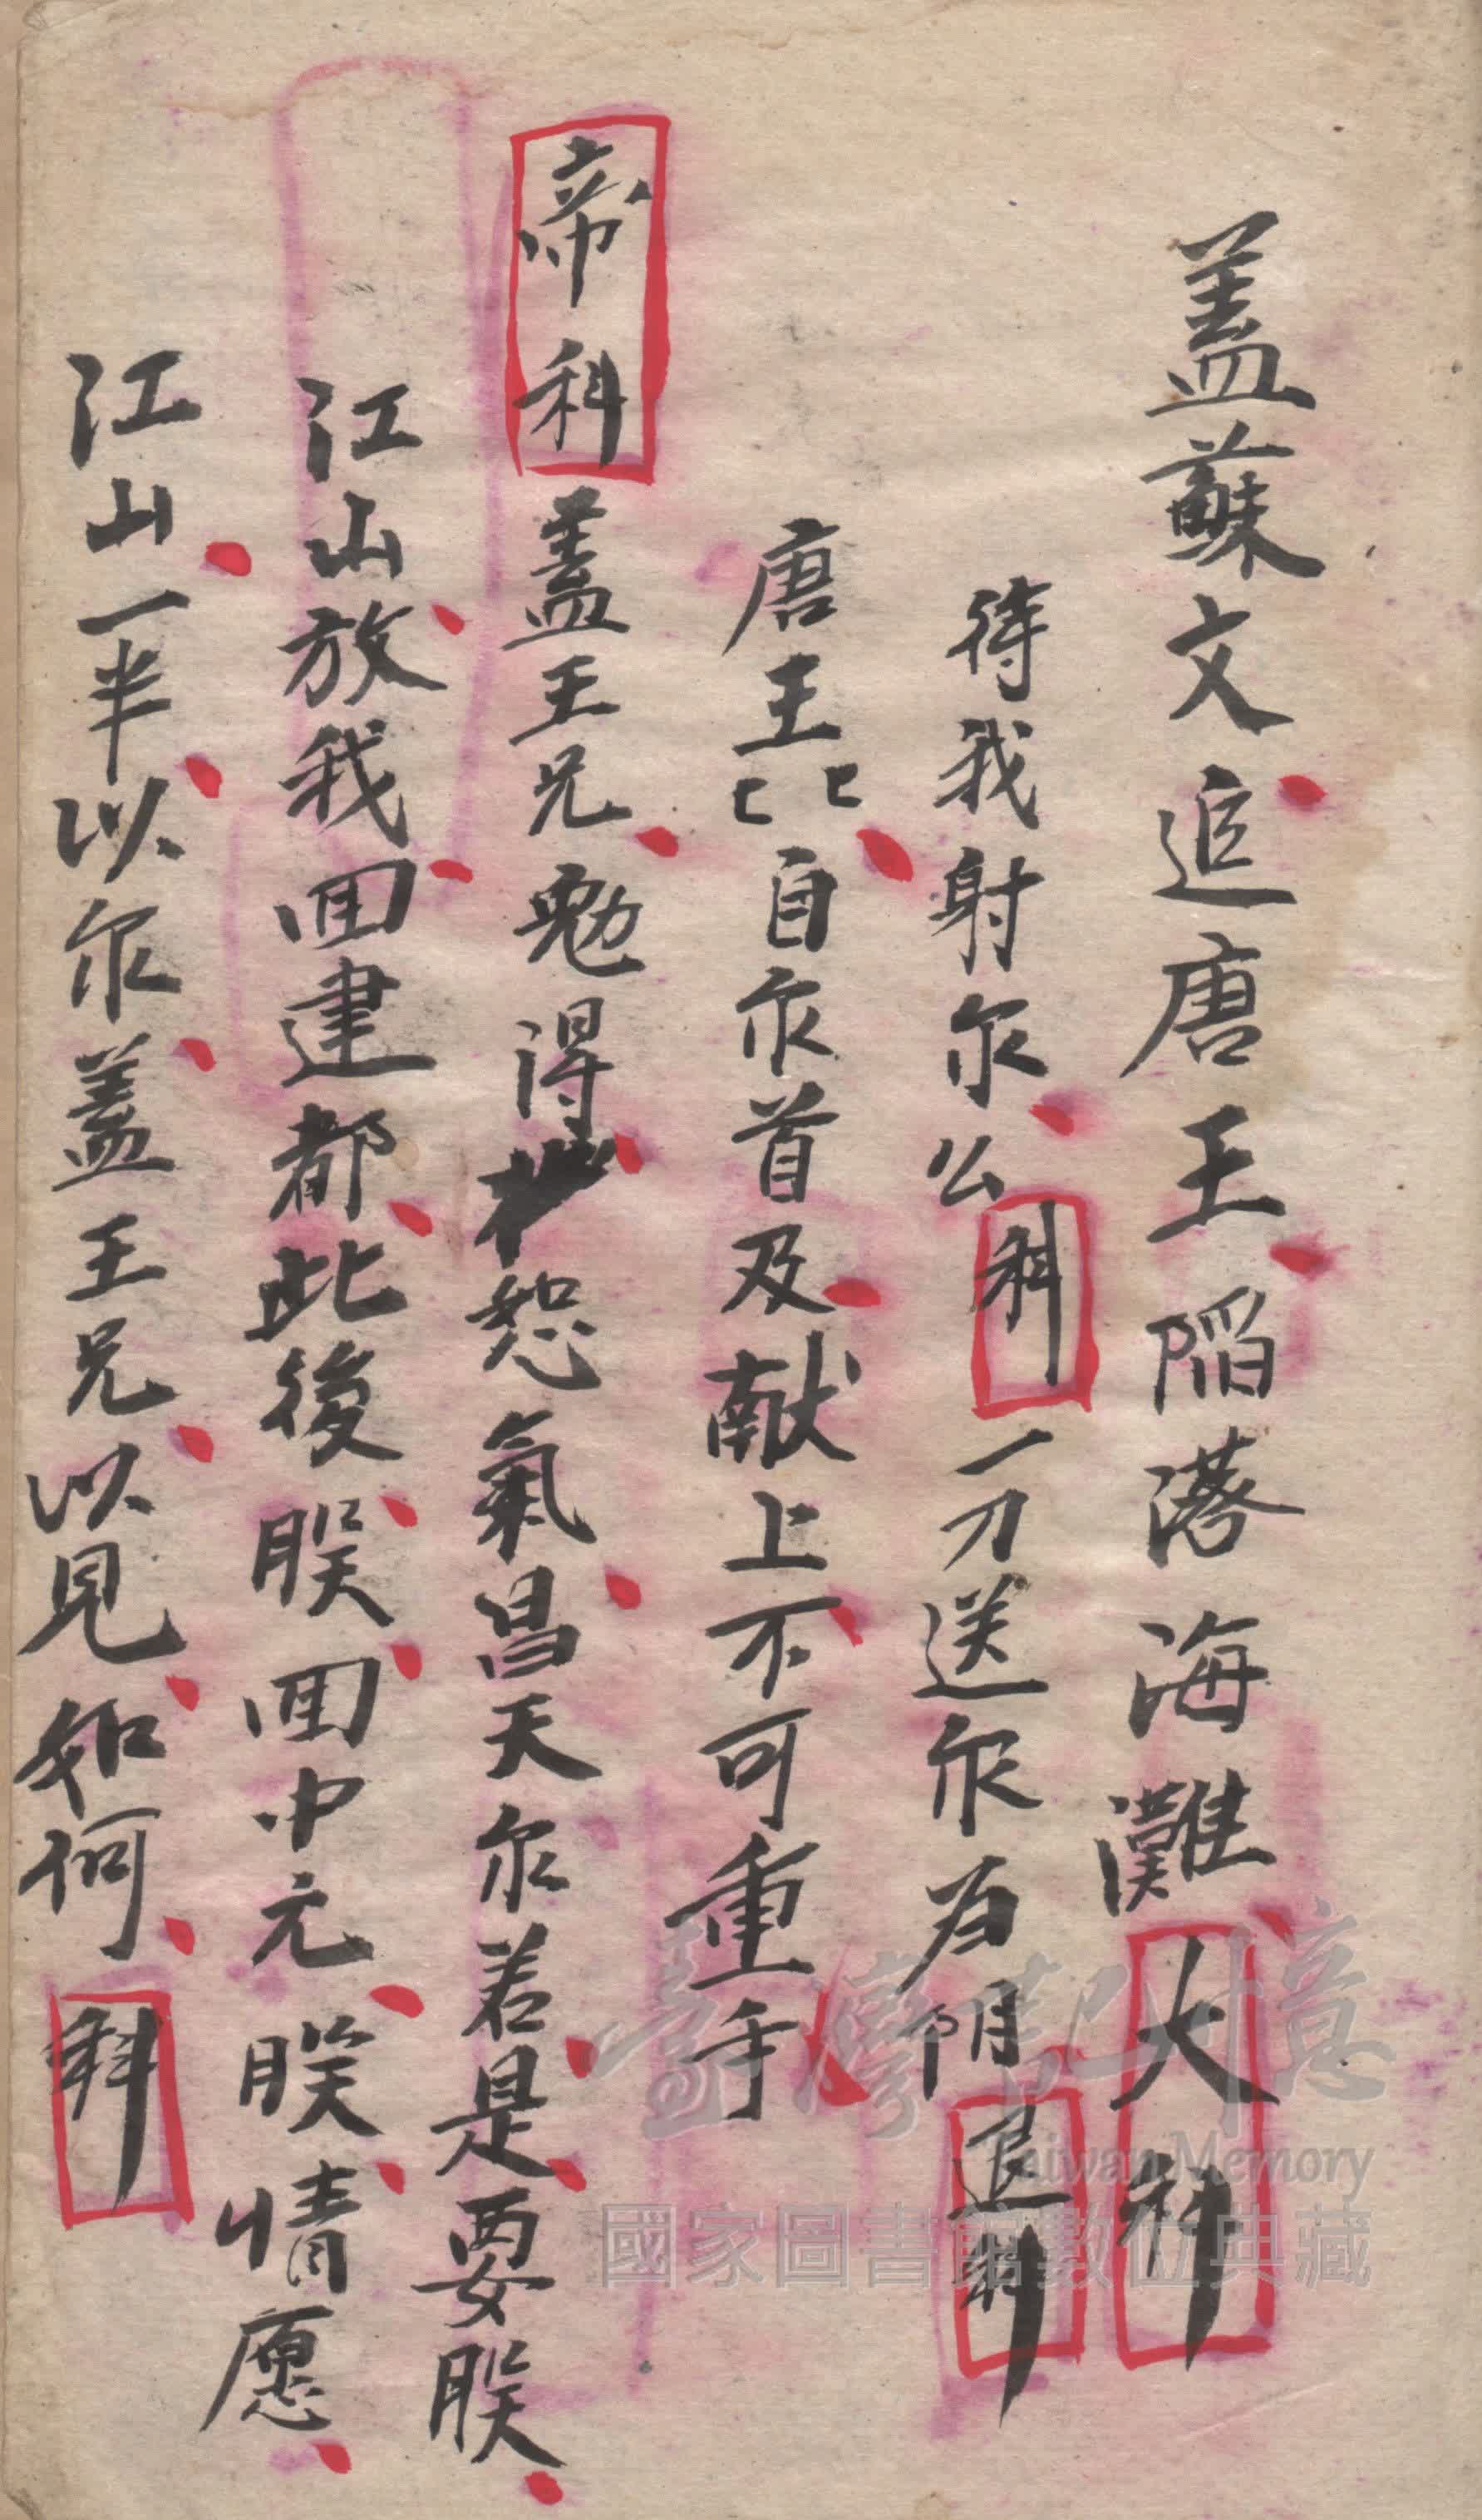 蓋蘇文追唐王陷落海灘大科
待我射尔公科一刀送尔为阴退科
唐王匕匕自尔首及献上不可重手
帝科蓋王兄勉得恕氣昌天尔若是要朕
江山放我回建都此後朕回中元朕情愿
江山一半以尔蓋王兄以見如何科
臺灣記憶
Taiwan Memory
國家圖書館數位典藏